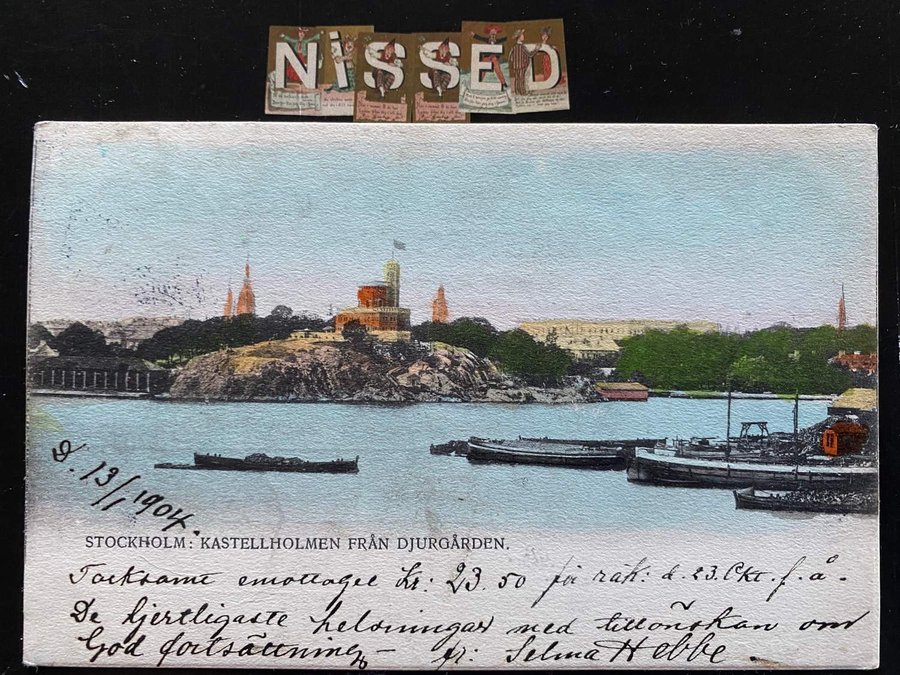 NiSSED
d. 13/1 1904.
STOCKHOLM: KASTELLHOLMEN FRÅN DJURGÅRDEN.
Tacksamt emottaget Kr: 23.50 för räk: d. 23. Okt. f. å.
De hjertligaste helsningar med tillönskan om
God fortsättning fr: Selma Hebbe.